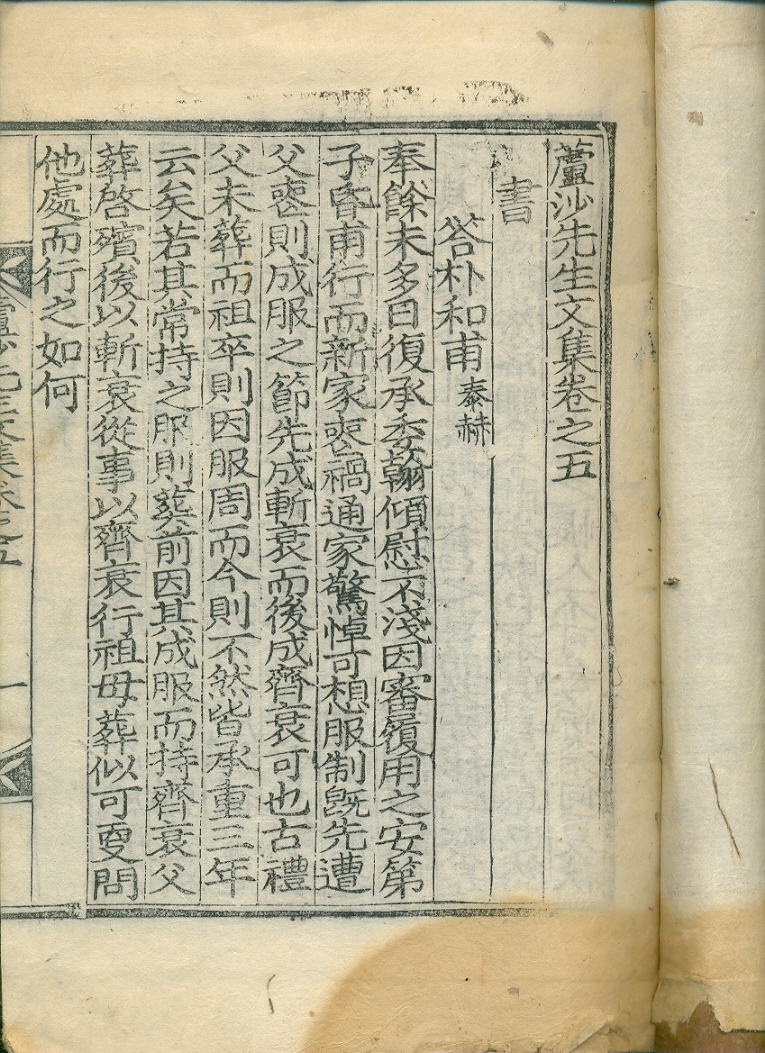 蘆沙先生文集卷之五
書
答朴和甫泰赫
奉餘未多日復承委翰傾慰不淺因審履用之安第
子昏甫行而新家喪禍通家驚悼可想服制旣先遭
父喪則成服之節先成斬衰而後成齊衰可也古禮
父未葬而祖卒則因服周而今則不然皆承重三年
云矣若其常持之服則葬前因其成服而持齊衰父
葬啓殯後以斬衰從事以齊衰行祖母葬似可更問
他處而行之如何
蘆沙先生文集卷之五 一